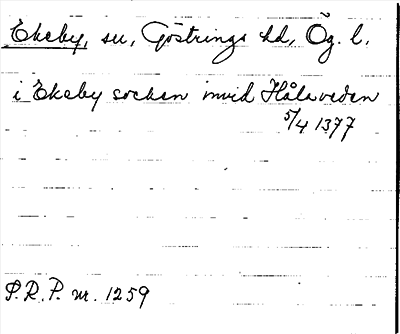 Ekeby, sn, Göstrings hd, Ög. l.
i Ekeby socken invid Hålaveden
5/4 1377
P.R.P. nr. 1259